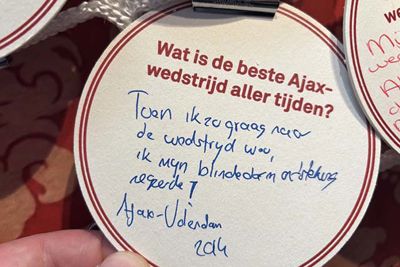 Wat is de beste Ajax-
wedstrijd aller tijden?
Toen ik zo graag naar
de wedstrijd wou,
ik mijn blindedarm ontsteking
negeerde!
Ajax-Volendam
2014
we